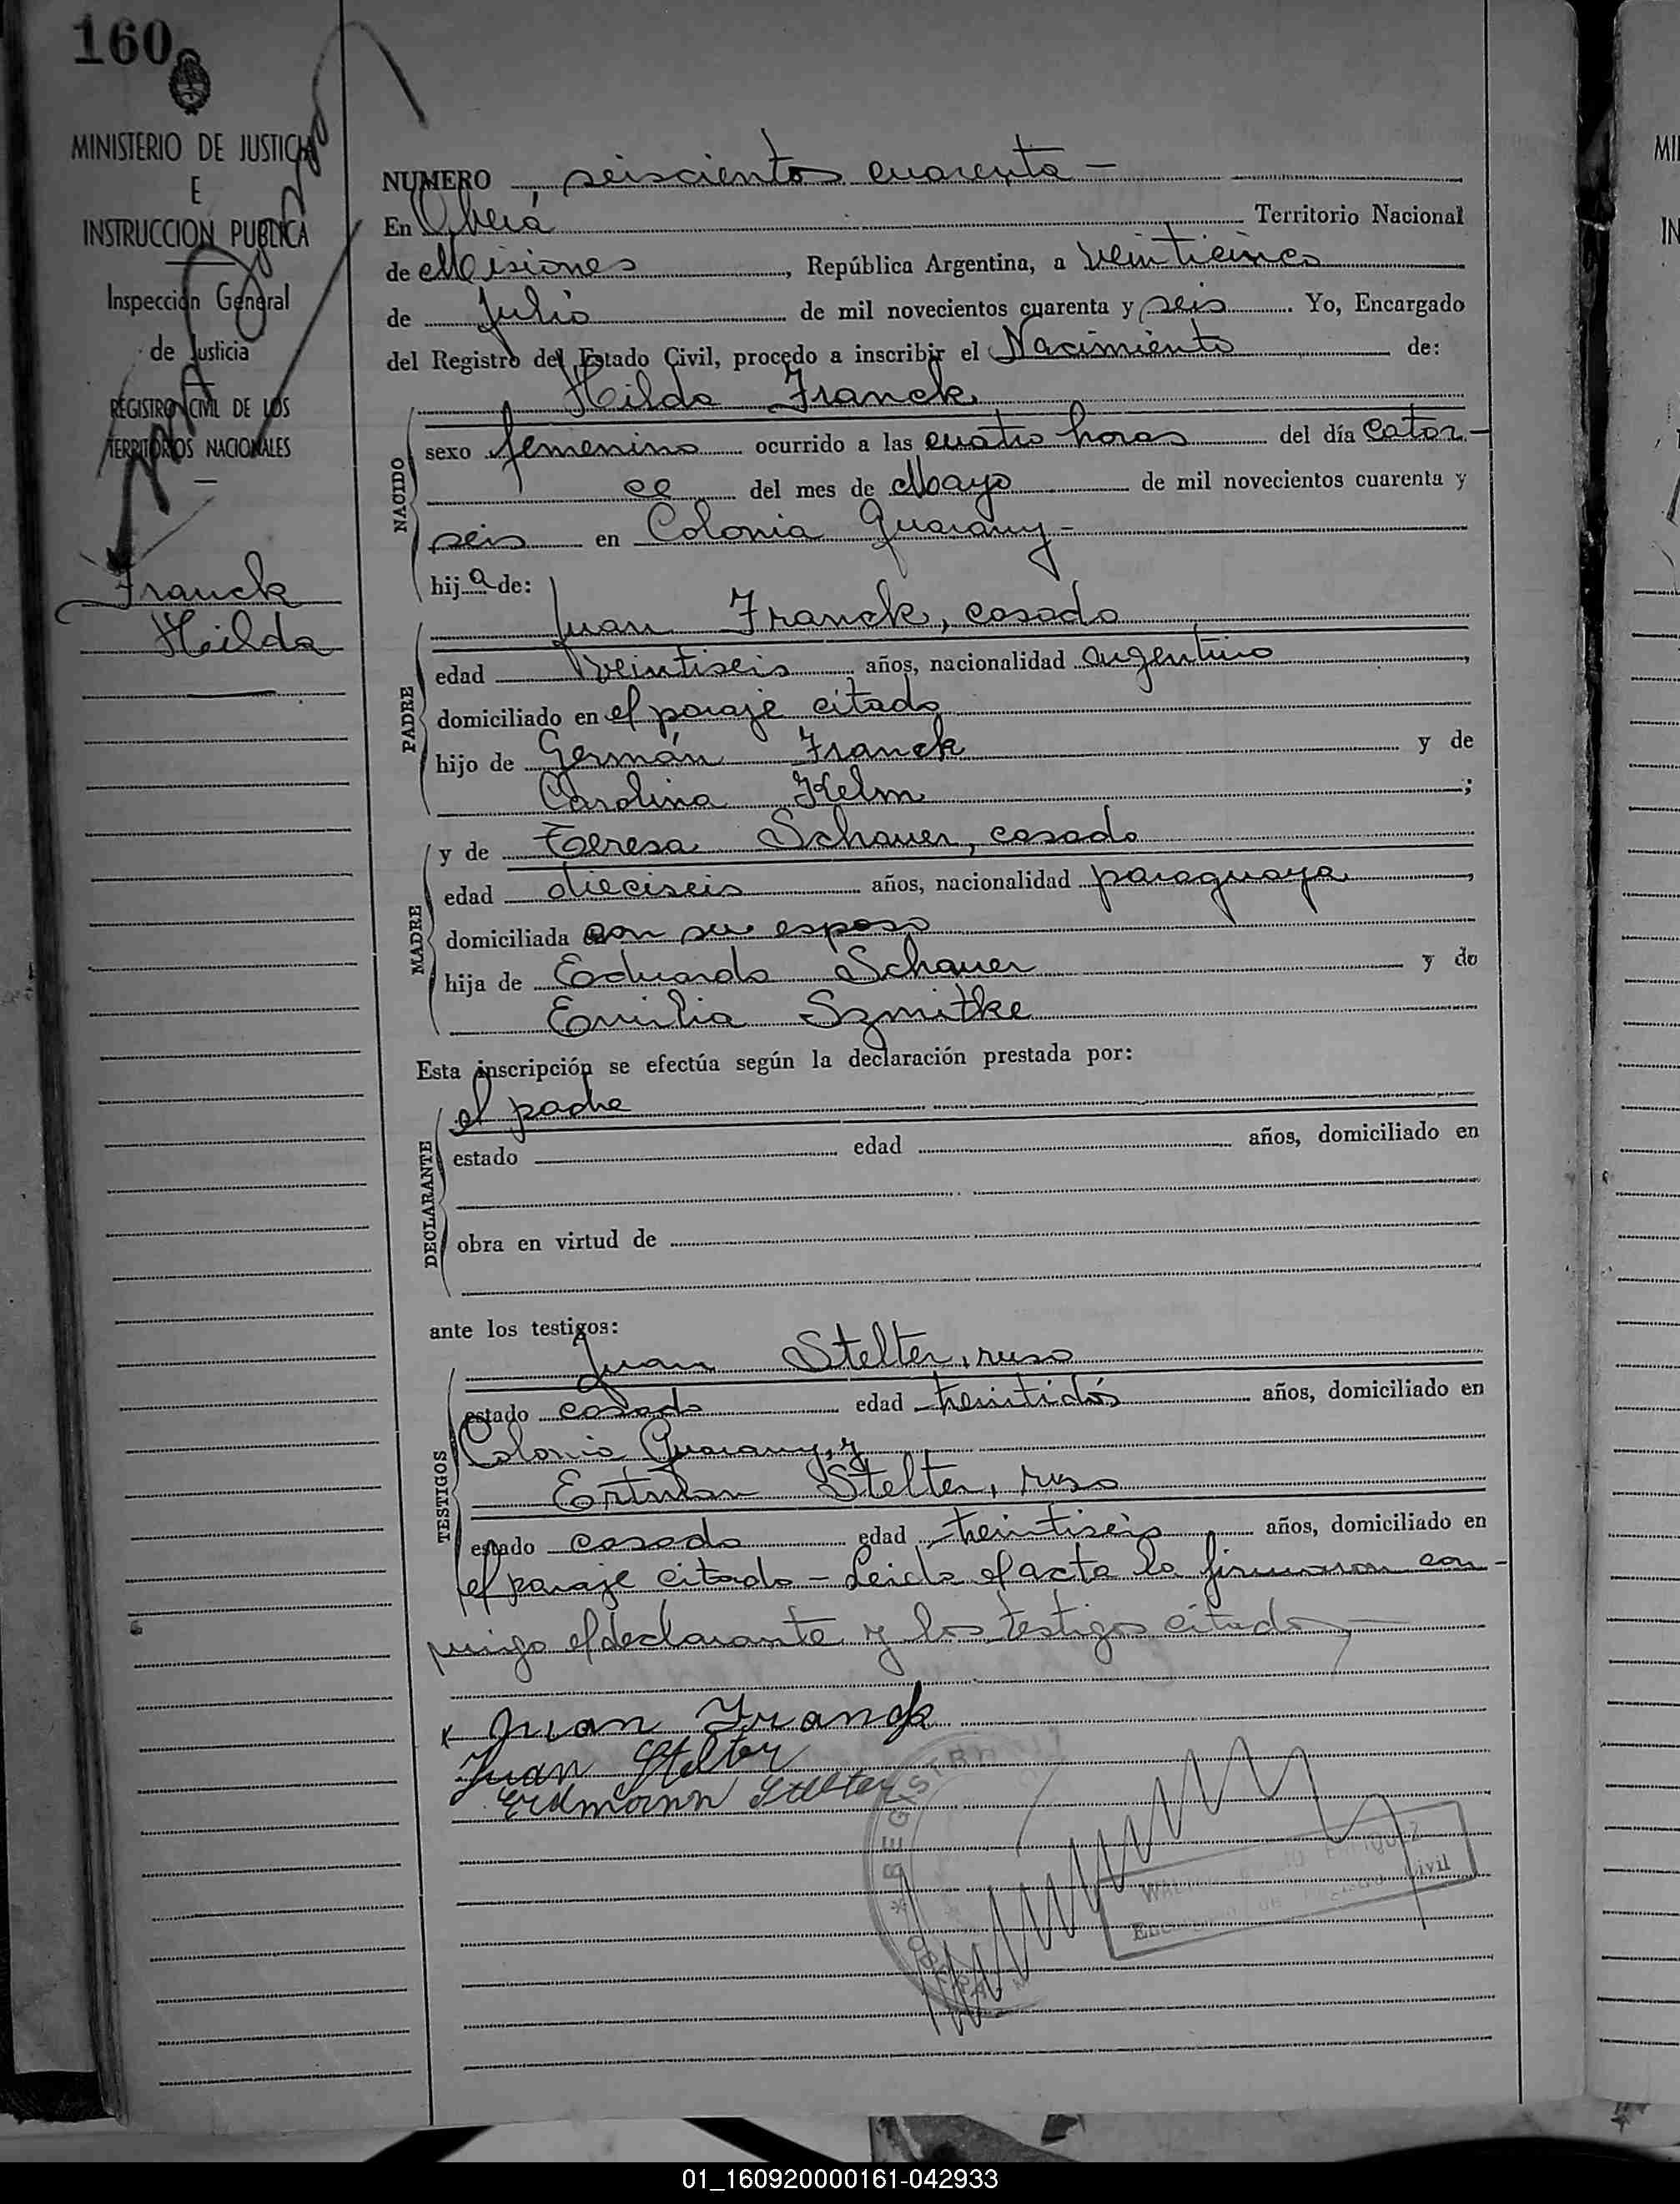 160
MINISTERIO DE JUSTICIA
E
INSTRUCCION PUBLICA
Inspección General
de Justicia
REGISTRO CIVIL DE LOS
TERRITORIOS NACIONALES
Franck
Hilda
NUMERO seiscientos cuarenta —
En Oberá Territorio Nacional
de Misiones, República Argentina, a veinticinco
de Julio de mil novecientos cuarenta y seis. Yo, Encargado
del Registro del Estado Civil, procedo a inscribir el Nacimiento de:
Hilda Franck
NACIDO
sexo femenino ocurrido a las cuatro horas del día Cator-
ce del mes de Mayo de mil novecientos cuarenta y
seis en Colonia Guarany-
hija de:
PADRE
Juan Franck, casado
edad veintiseis años, nacionalidad argentino,
domiciliado en el paraje citado
hijo de Germán Franck y de
Carolina Helm;
MADRE
y de Teresa Schauer, casada
edad dieciseis años, nacionalidad paraguaya,
domiciliada con su esposo
hija de Eduardo Schauer y de
Emilia Szmitke
Esta inscripción se efectúa según la declaración prestada por:
DECLARANTE
el padre
estado edad años, domiciliado en
obra en virtud de
ante los testigos:
TESTIGOS
Juan Stelter, ruso
estado casado edad treintidós años, domiciliado en
Colonia Guarany, y
Stelter, ruso
estado casado edad treintiseis años, domiciliado en
el paraje citado - Leida el acta la firmaron con-
migo el declarante y los testigos citados,-
x Juan Franck
Juan Stelter
Erdmann Stelter
REGISTRO
Encargado de Registro Civil
01_160920000161-042933